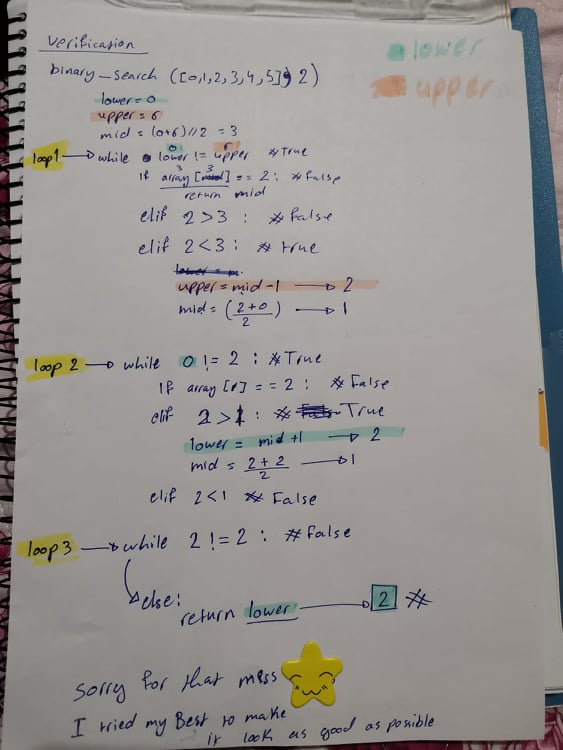 Verification
lower
upper
binary_search ([0,1,2,3,4,5], 2)
lower = 0
upper = 6
mid = (0+6)//2 = 3
0 6
loop1 → while lower != upper #True
3 3
if array [mid] == 2: #False
return mid
elif 2 > 3: #False
elif 2 < 3: #True
lower = m
upper = mid - 1 → 2
mid = (2+0/2) → 1
loop 2 → while 0 != 2 : #True
If array [1] == 2: #False
elif 2 > 1: # True
lower = mid + 1 → 2
mid = 2+2/2 → 1
elif 2 < 1 # False
loop3 → while 2 != 2 : #False
else:
return lower → 2 #
Sorry for that mess
I tried my Best to make
it look as good as possible